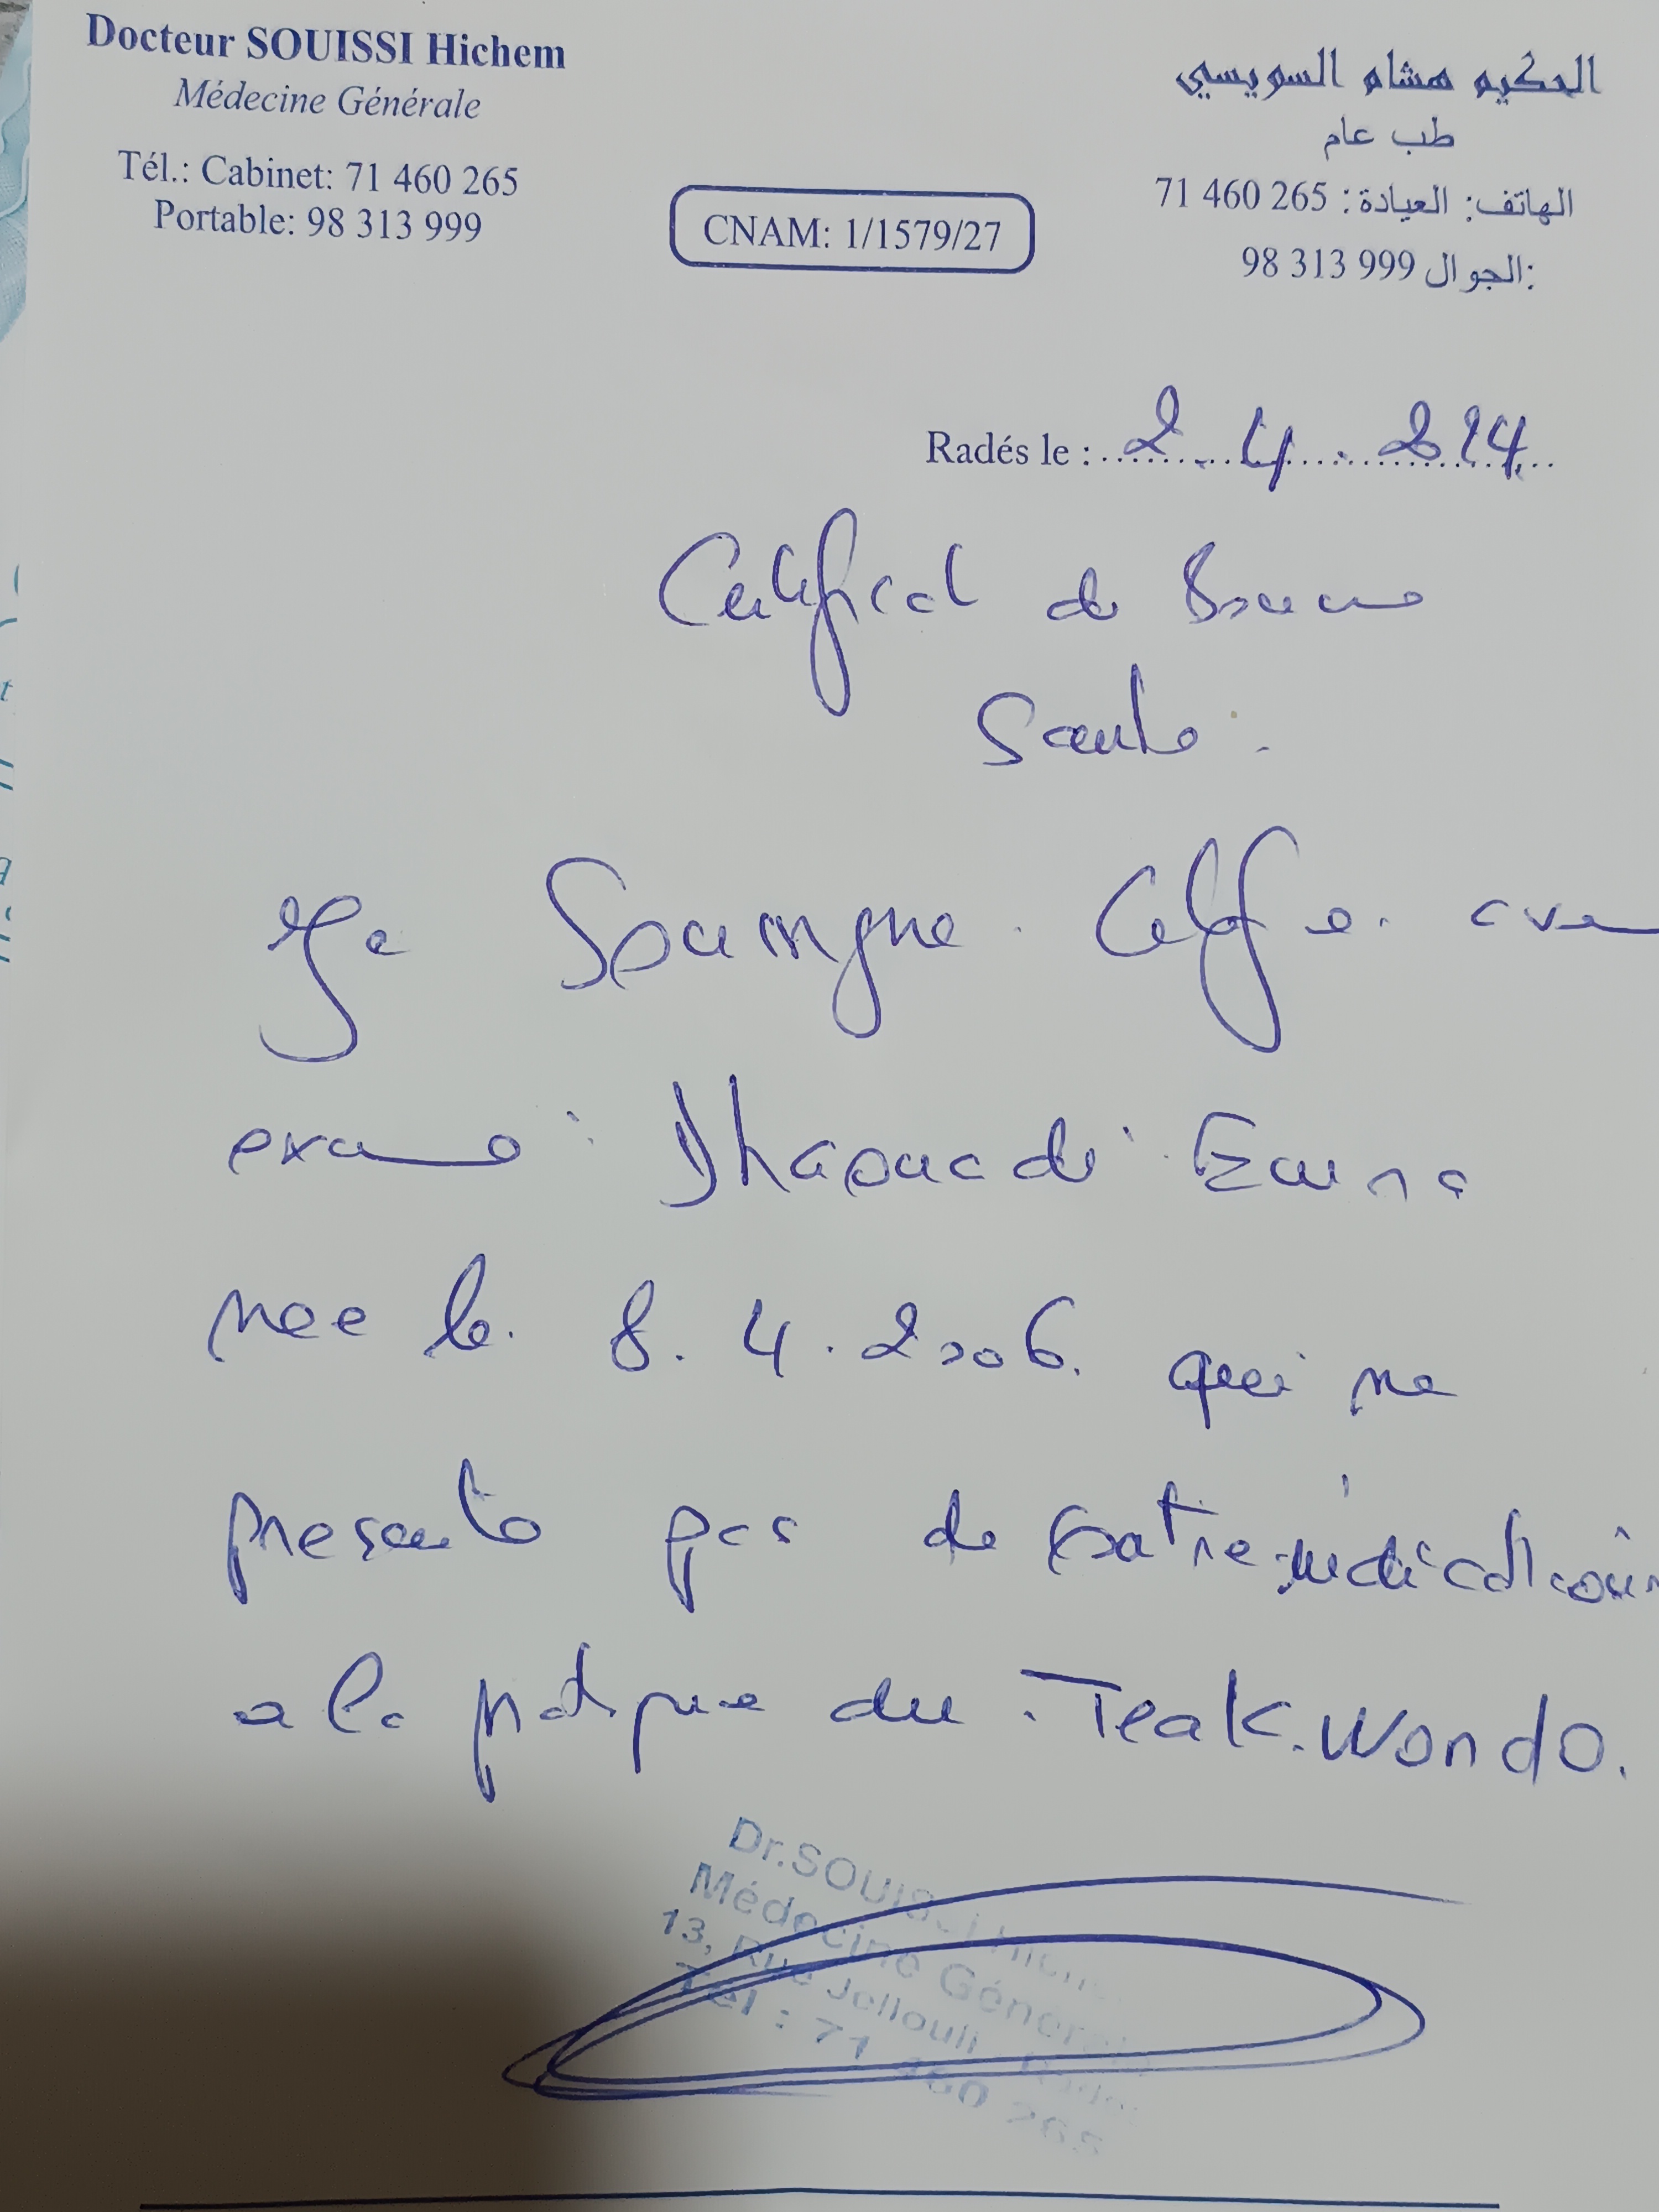 Docteur SOUISSI Hichem
Médecine Générale
Tél.: Cabinet: 71 460 265
Portable: 98 313 999
الحكيم هشام السويسي
طب عام
الهاتف: العيادة: 265 460 71
الجوال: 999 313 98
CNAM: 1/1579/27
Radés le : 2.4.214
Certificat de Bonne
Sante.
Je Soussigne Certifie avoir
examine Dhaouadi
nee le 8.4.2006 qui ne
presente pas de contre indication
a la pratique du Teak.wondo.
Dr.SOUISSI Hichem
Médecine Générale
13, Rue Jellouli
Tél : 71 460 265